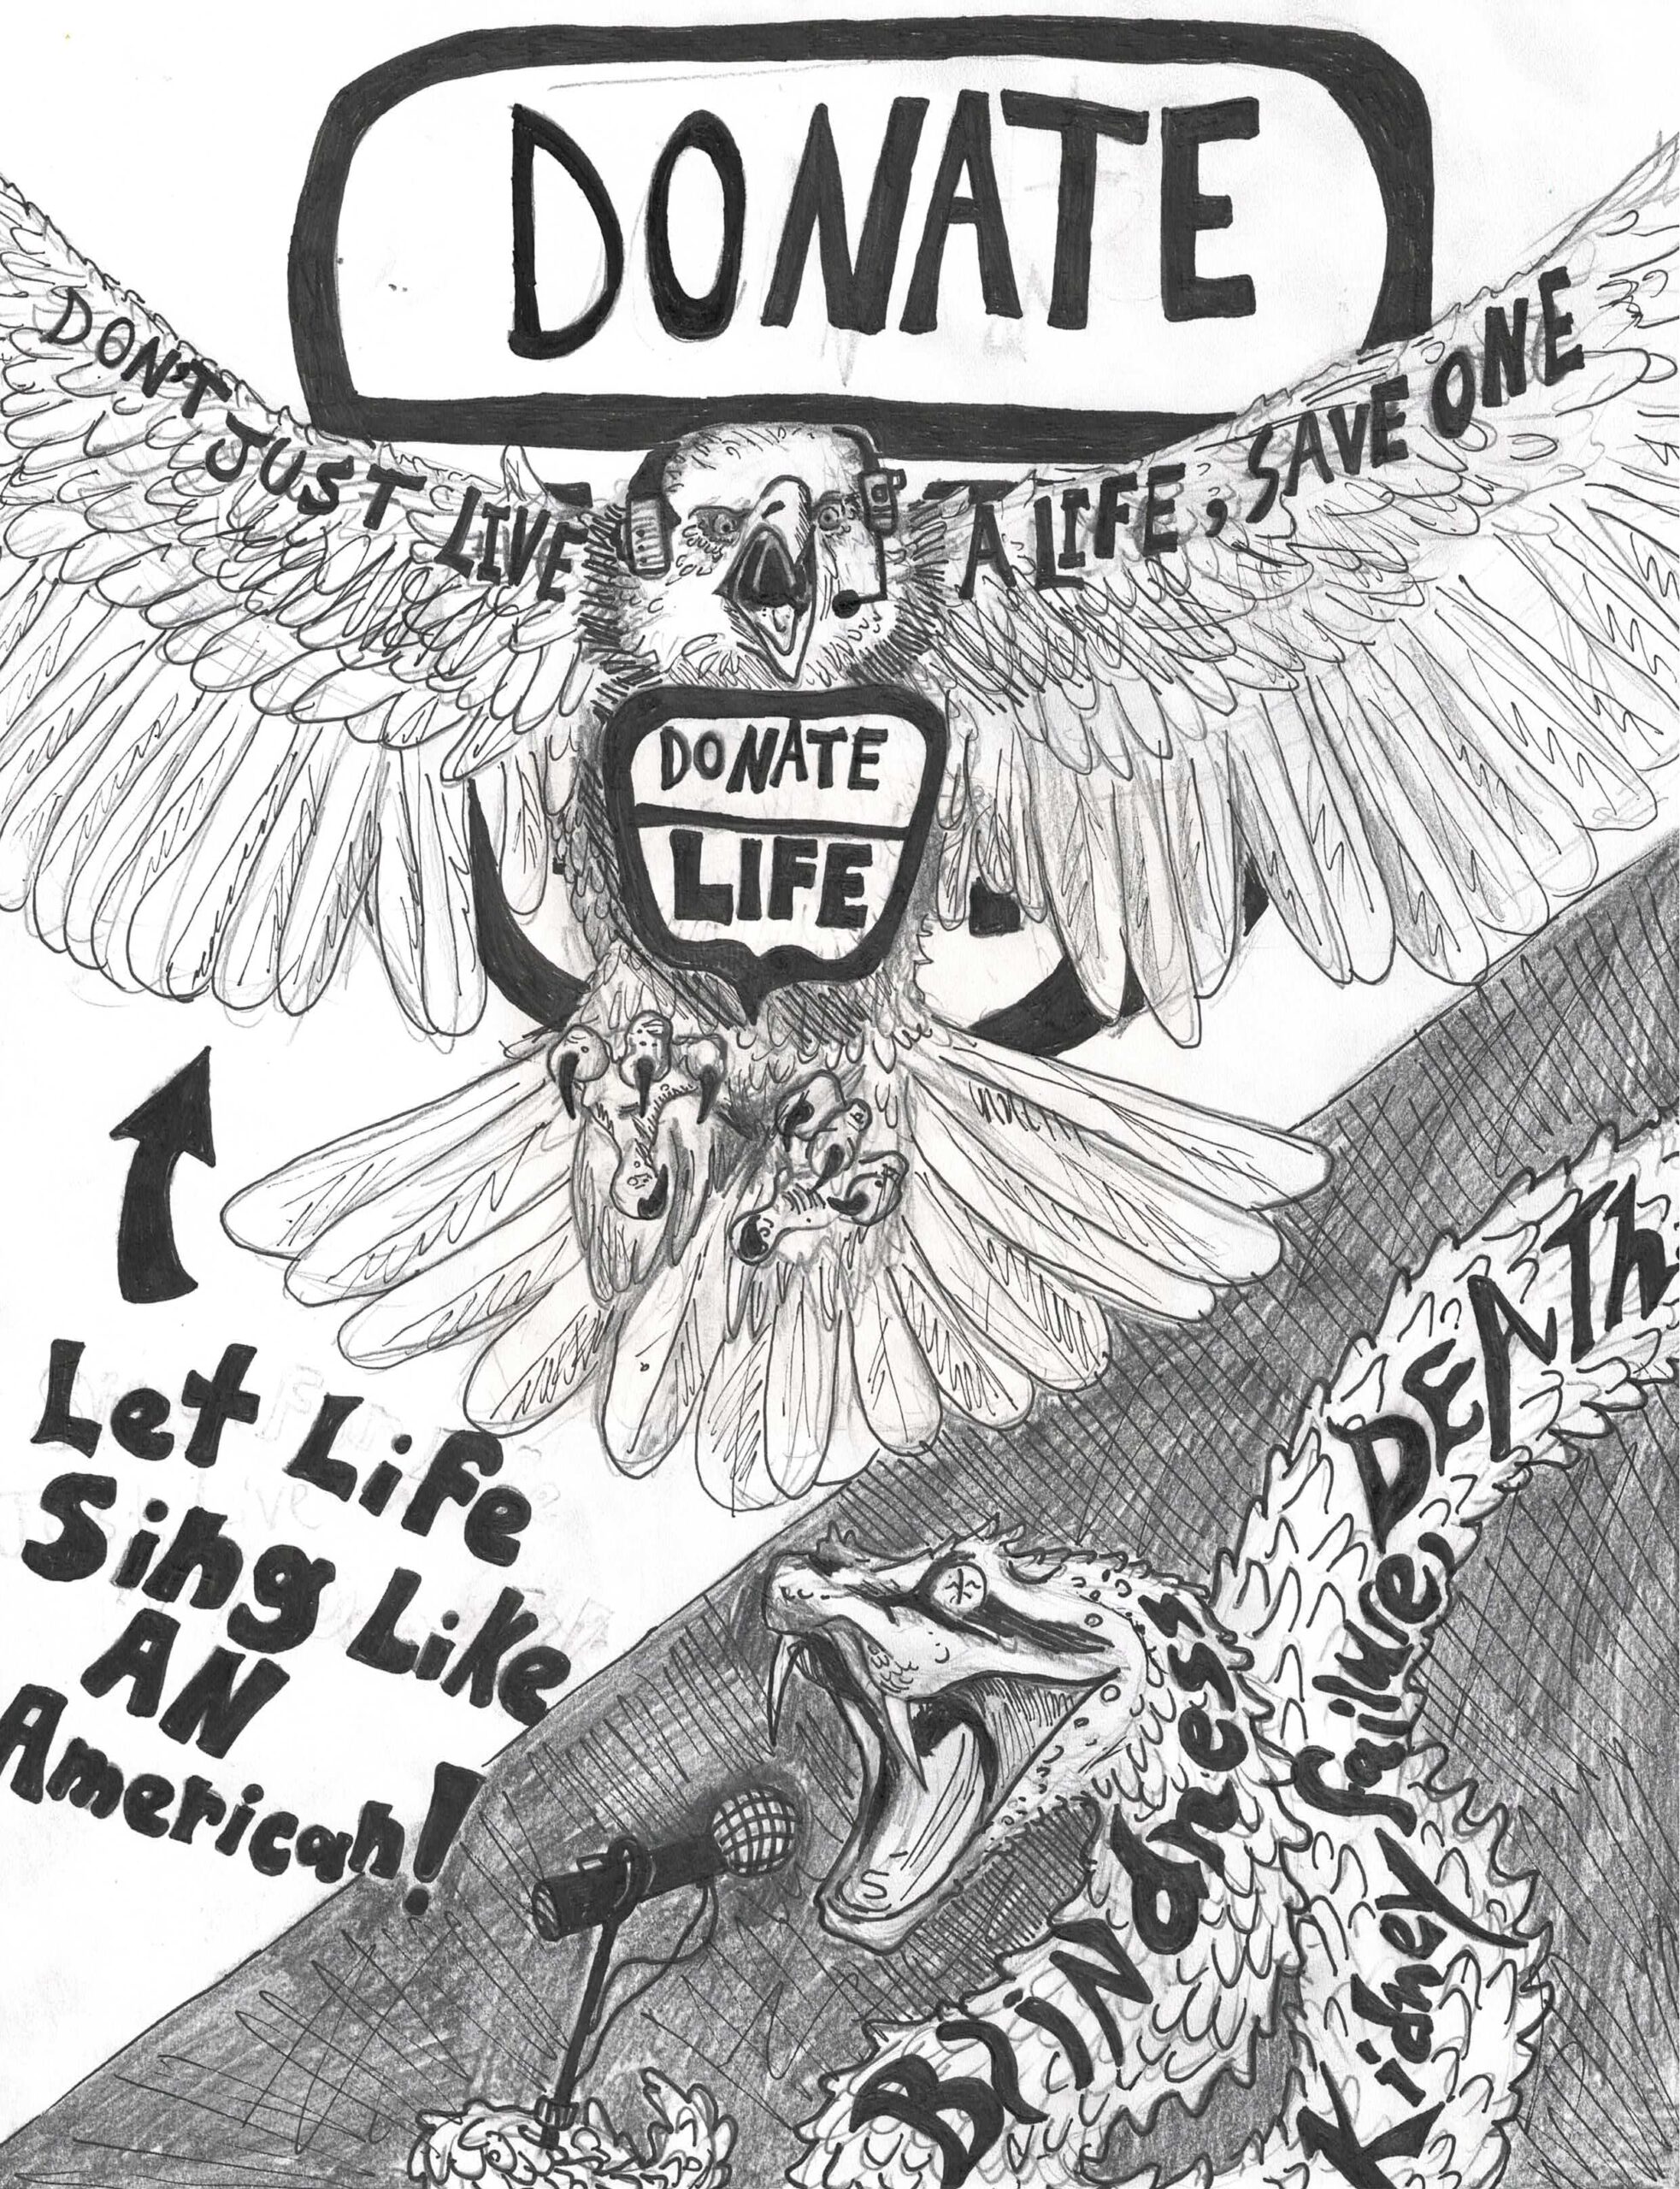 DONATE
DON'T JUST LIVE A LIFE, SAVE ONE
DONATE
LIFE
Let Life
Sing Like
AN
American!
DEATh
Blindness
Kidney failure